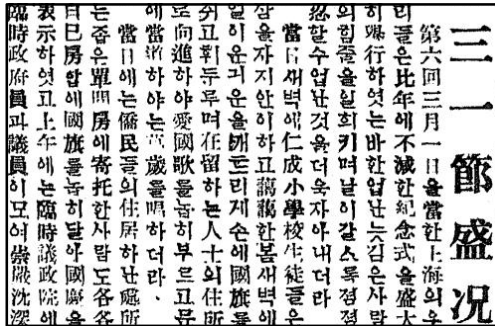 三一節盛况
第六回三月一日을當한上海의우
리들은比年에不減한紀念式을盛大
히擧行하엿는바한업난늣김은사람
의힘줄을일희키며날이갈스록졍졍
忍할수업난것을더욱자아내더라
當日새벽에仁成小學校生徒들은
잠을자지안이하고藹藹한봄새벽에
일이운긔운을 리게손에國旗를
쥐고휘두루며在留하는人士의住所
로向進하야愛國歌를놉히부르고문
에當하야는萬歲를唱하더라.
當日에는僑民들의住居하난處所
는좁은單間房에寄托한사람도各各
自己房압헤國旗를놉히달아國慶을
表示하엿고上午에는臨時議政院에
臨時政府員과議員이모여崇嚴沈深